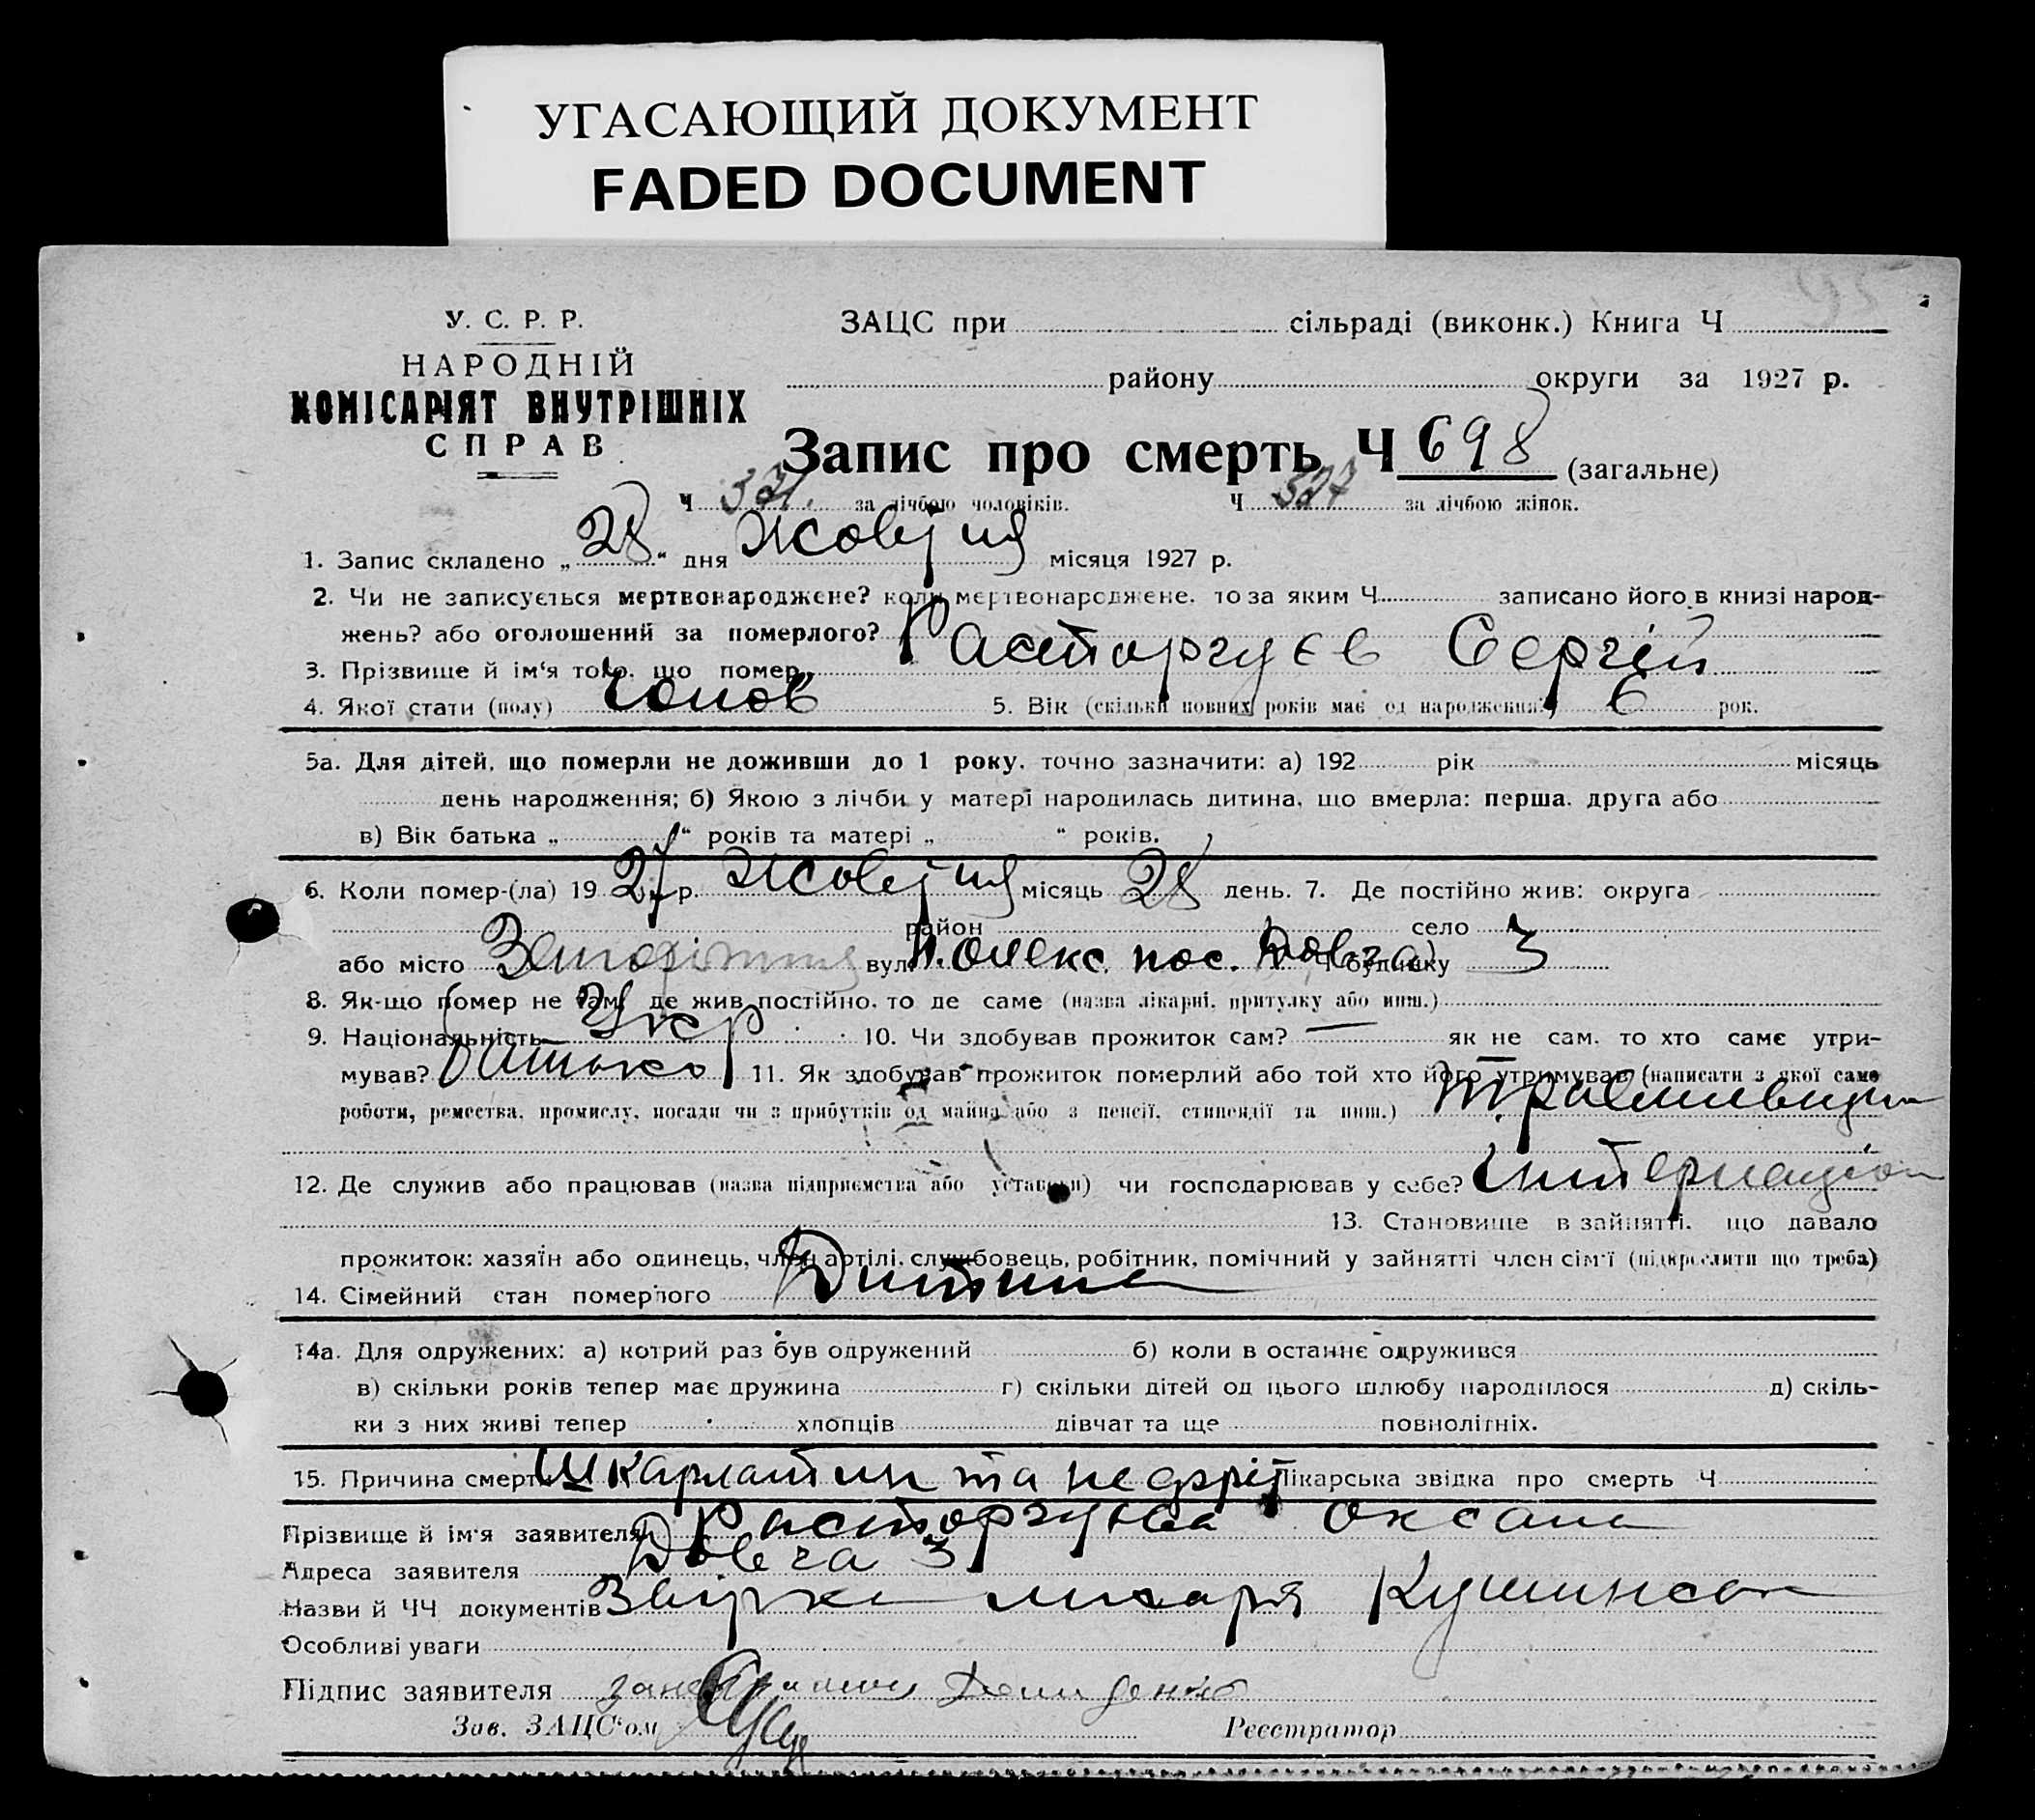 УГАСАЮЩИЙ ДОКУМЕНТ
FADED DOCUMENT
У. С. Р. Р.
НАРОДНІЙ
КОМІСАРІЯТ ВНУТРІШНІХ
СПРАВ
ЗАЦС при сільраді (виконк.) Книга Ч
району округи за 1927 р.
Запис про смерть Ч 698 (загальне)
Ч за лічбою чоловіків. Ч 327 за лічбою жінок.
1. Запис складено „28“ дня Жовтня місяця 1927 р.
2. Чи не записується мертвонароджене? коли мертвонароджене, то за яким Ч записано його в книзі народ-
жень? або оголошений за померлого?
3. Прізвище й ім‘я того, що помер Расторгуєв Сергій
4. Якої стати (полу) чолов 5. Вік (скільки повних років має од народження?) 6 рок.
5а. Для дітей, що померли не доживши до 1 року, точно зазначити: а) 192 рік місяць
день народження; б) Якою з лічби у матері народилась дитина, що вмерла: перша, друга або
в) Вік батька „ “ років та матері „ “ років.
6. Коли помер-(ла) 1927 р. Жовтня місяць 28 день. 7. Де постійно жив: округа
район село
або місто Запоріжжя вул. Олекс. пос. Довга Ч будинку 3
8. Як-що помер не там, де жив постійно, то де саме (назва лікарні, притулку або инш.)
9. Національність Укр 10. Чи здобував прожиток сам? — як не сам, то хто саме утри-
мував? батько 11. Як здобував прожиток померлий або той хто його утримував (написати з якої саме
роботи, ремества, промислу, посади чи з прибутків од майна або з пенсії, стипендії та инш.)
12. Де служив або працював (назва підприємства або установи) чи господарював у себе? Интернацион
13. Становище в зайнятті, що давало
прожиток: хазяїн або одинець, член артілі, службовець, робітник, помічний у зайнятті член сім‘ї (підкреслити що треба)
14. Сімейний стан померлого Дитина
14а. Для одружених: а) котрий раз був одружений б) коли в останнє одружився
в) скільки років тепер має дружина г) скільки дітей од цього шлюбу народилося д) скіль-
ки з них живі тепер хлопців дівчат та ще повнолітніх.
15. Причина смерти Шкарлатин та нефріт Лікарська звідка про смерть Ч
Прізвище й ім‘я заявителя Расторгуєва Оксана
Адреса заявителя Довга 3
Назви й ЧЧ документів ликаря
Особливі уваги
Підпис заявителя
Зав. ЗАЦС‘ом Реєстратор